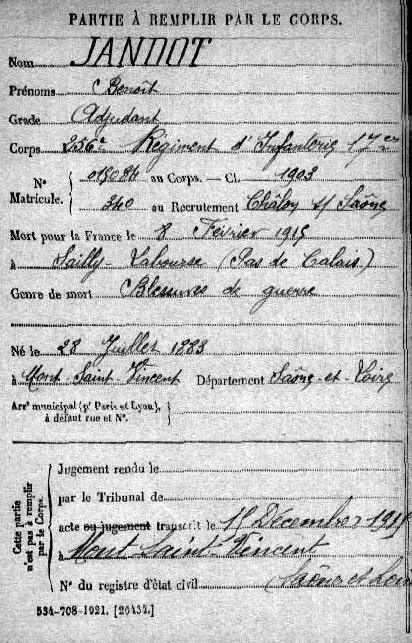 PARTIE À REMPLIR PAR LE CORPS.
Nom JANDOT
Prénoms Benoît
Grade Adjudant
Corps 256e Régiment d'Infanterie 17e Cie
N° Matricule. { 015084 au Corps. — Cl. 1903
340 au Recrutement Châlon s/ Saône
Mort pour la France le 8 Février 1915
à Sailly-Labourse (Pas de Calais)
Genre de mort Blessures de guerre
Né le 28 Juillet 1883
à Mont-Saint-Vincent Département Saône-et-Loire
Arrt municipal (pr Paris et Lyon), à défaut rue et N°. }
Cette partie n'est pas à remplir par le Corps.
Jugement rendu le
par le Tribunal de
acte ou jugement transcrit le 15 Décembre 1915
à Mont Saint-Vincent
N° du registre d'état civil Saône et Loire
534-708-1921. [26434.]